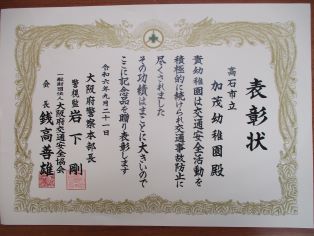 表彰状
高石市立
加茂幼稚園殿
貴幼稚園は交通安全活動を
積極的に続けられ交通事故防止に
尽くされました
その功績はまことに大きいので
ここに記念品を贈り表彰します
令和六年九月二十一日
大阪府警察本部長
警視監 岩下剛
一般財団法人大阪府交通安全協会
会長 銭高善雄